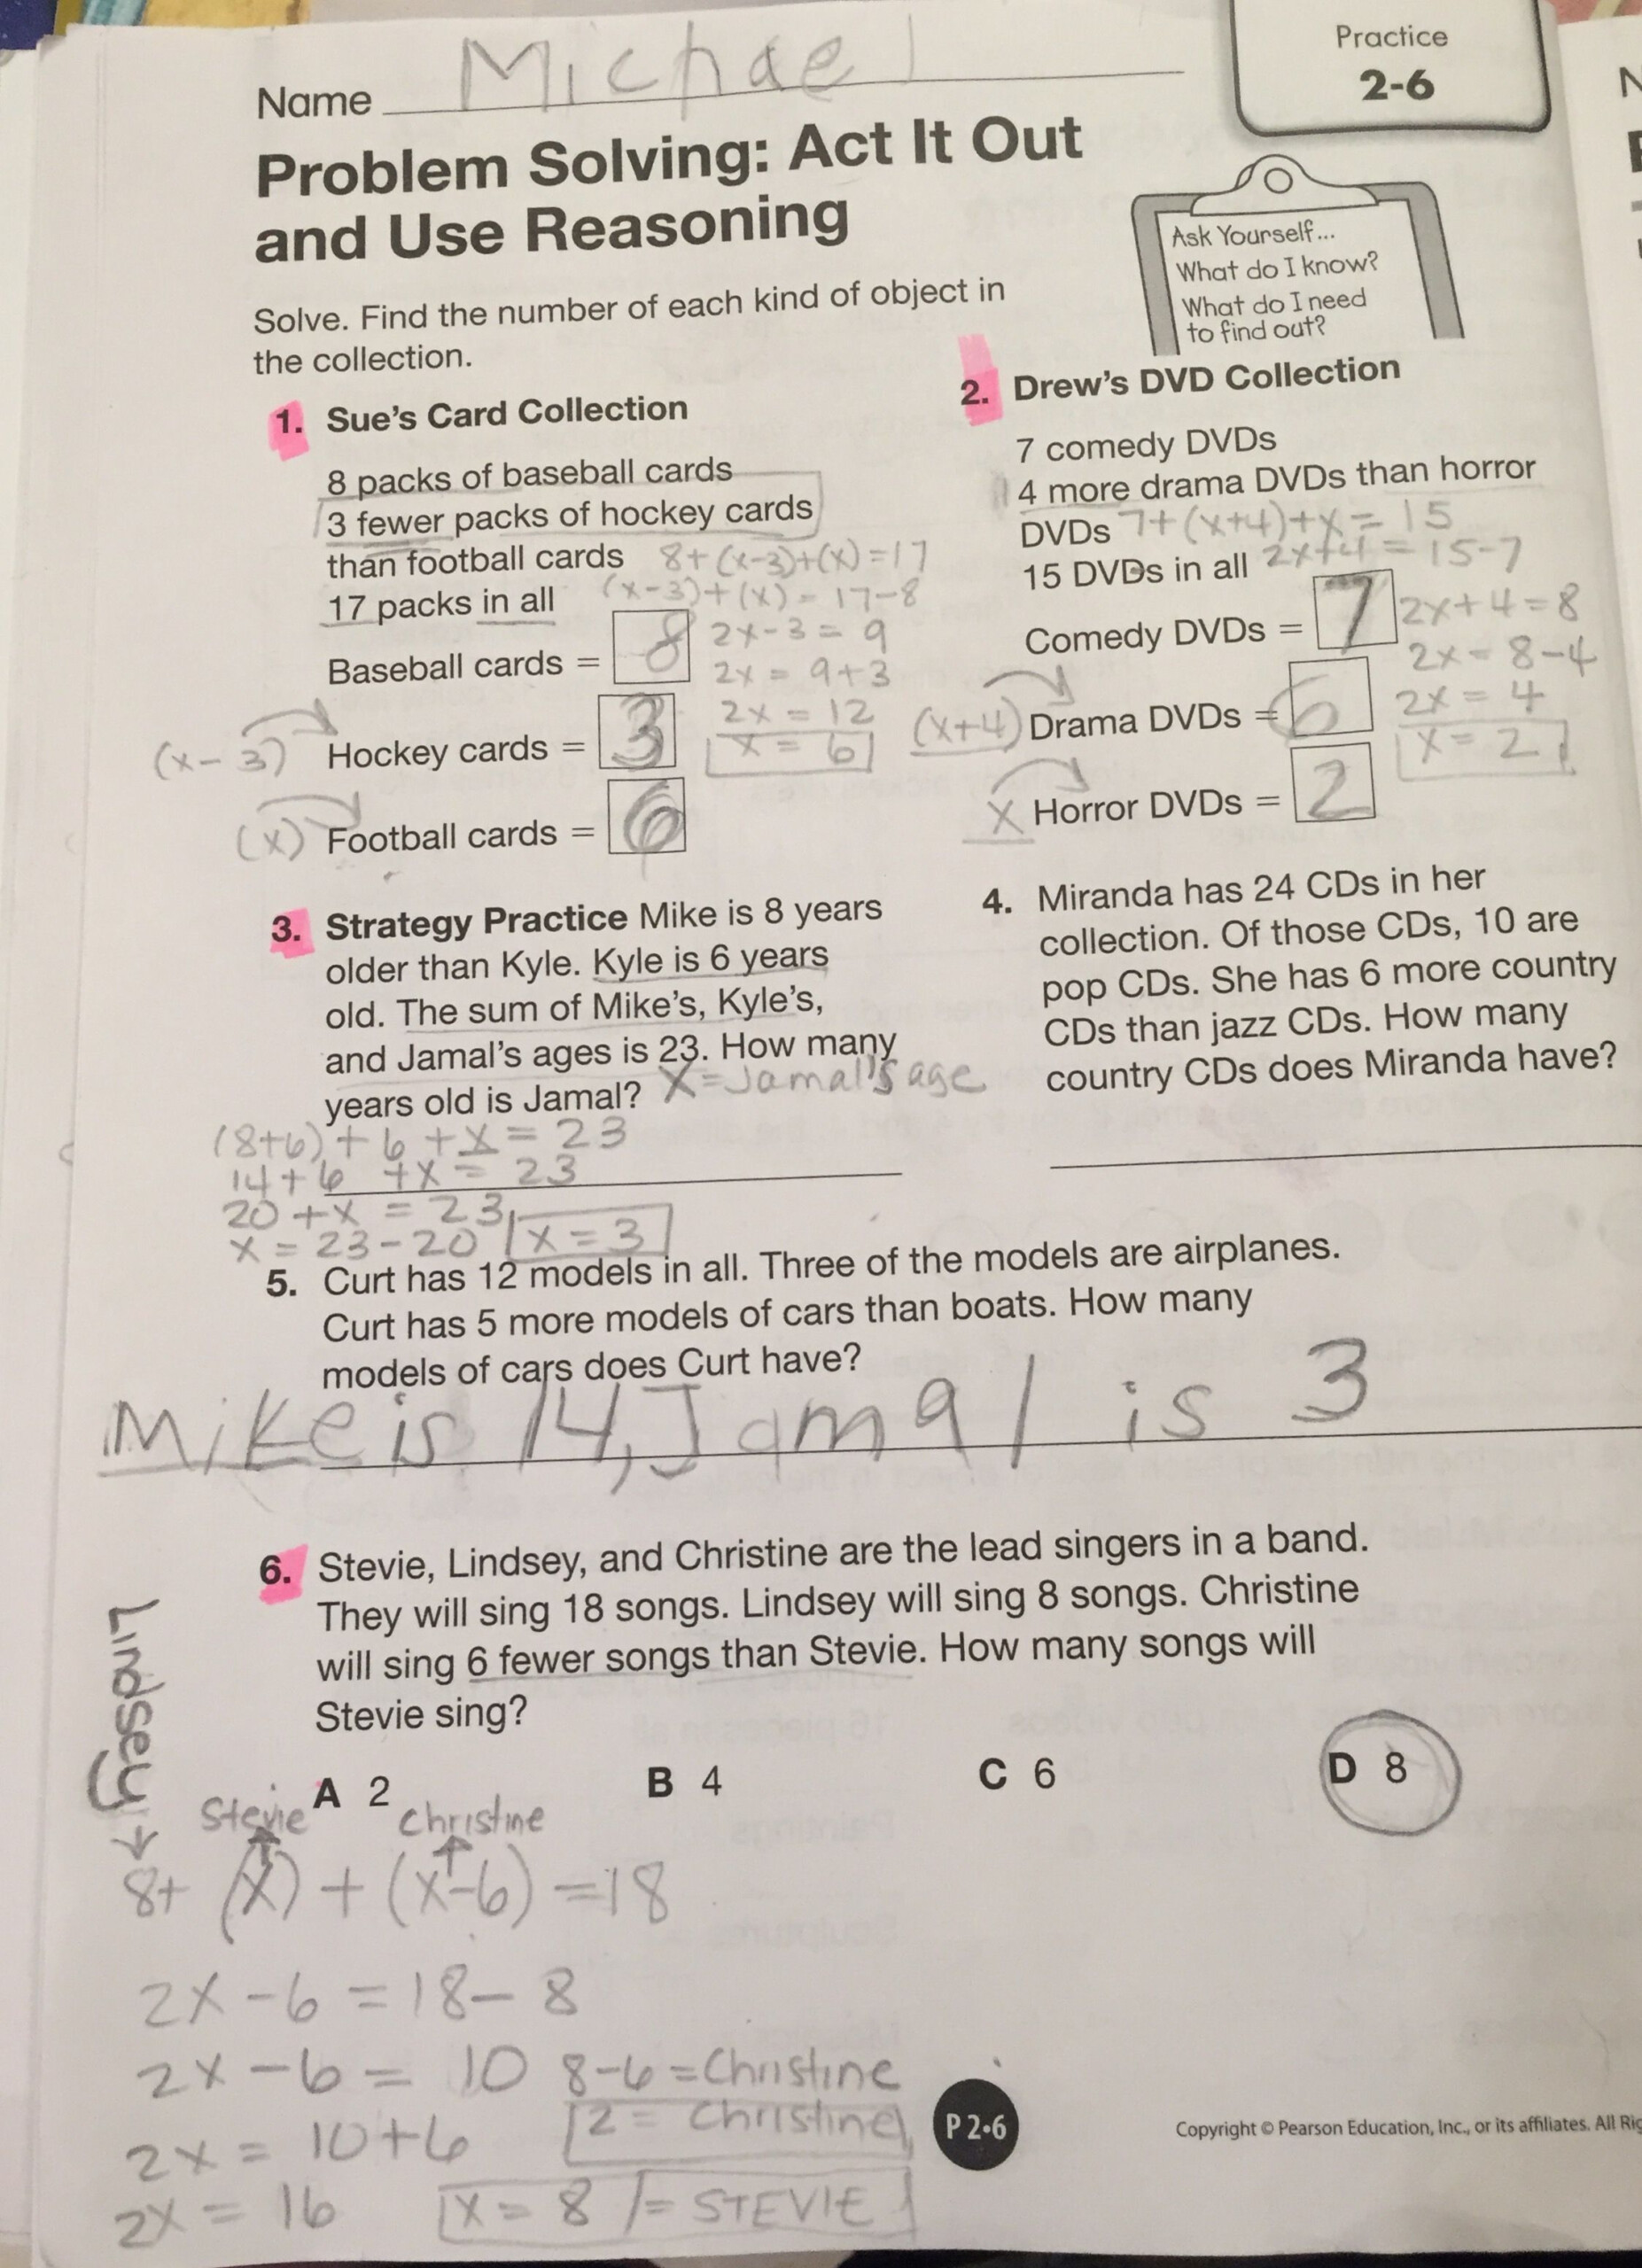 Name Michael
Practice
2-6
Problem Solving: Act It Out
and Use Reasoning
Ask Yourself...
What do I know?
What do I need
to find out?
Solve. Find the number of each kind of object in
the collection.
1. Sue's Card Collection
8 packs of baseball cards
3 fewer packs of hockey cards
than football cards 8+(x-3)+(x)=17
17 packs in all (x-3)+(x)=17-8
Baseball cards = 8
2x-3=9
2x=9+3
(x-3) Hockey cards = 3
2x=12
x=6
(x) Football cards = 6
2. Drew's DVD Collection
7 comedy DVDs
4 more drama DVDs than horror
DVDs 7+(x+4)+x=15
15 DVDs in all 2x+4=15-7
Comedy DVDs = 7
2x+4=8
2x=8-4
(x+4) Drama DVDs = 6
2x=4
x=2
x Horror DVDs = 2
3. Strategy Practice Mike is 8 years
older than Kyle. Kyle is 6 years
old. The sum of Mike's, Kyle's,
and Jamal's ages is 23. How many
years old is Jamal? X=Jamal's age
(8+6)+6+x=23
14+6+x=23
20+x=23
x=23-20 x=3
4. Miranda has 24 CDs in her
collection. Of those CDs, 10 are
pop CDs. She has 6 more country
CDs than jazz CDs. How many
country CDs does Miranda have?
5. Curt has 12 models in all. Three of the models are airplanes.
Curt has 5 more models of cars than boats. How many
models of cars does Curt have?
Mike is 14, Jamal is 3
6. Stevie, Lindsey, and Christine are the lead singers in a band.
They will sing 18 songs. Lindsey will sing 8 songs. Christine
will sing 6 fewer songs than Stevie. How many songs will
Stevie sing?
A 2 B 4 C 6 D 8
Lindsey →
Stevie Christine
8+(x)+(x-6)=18
2x-6=18-8
2x-6=10 8-6=Christine
2x=10+6 2=Christine
2x=16 x=8 = STEVIE
P 2•6
Copyright © Pearson Education, Inc., or its affiliates. All